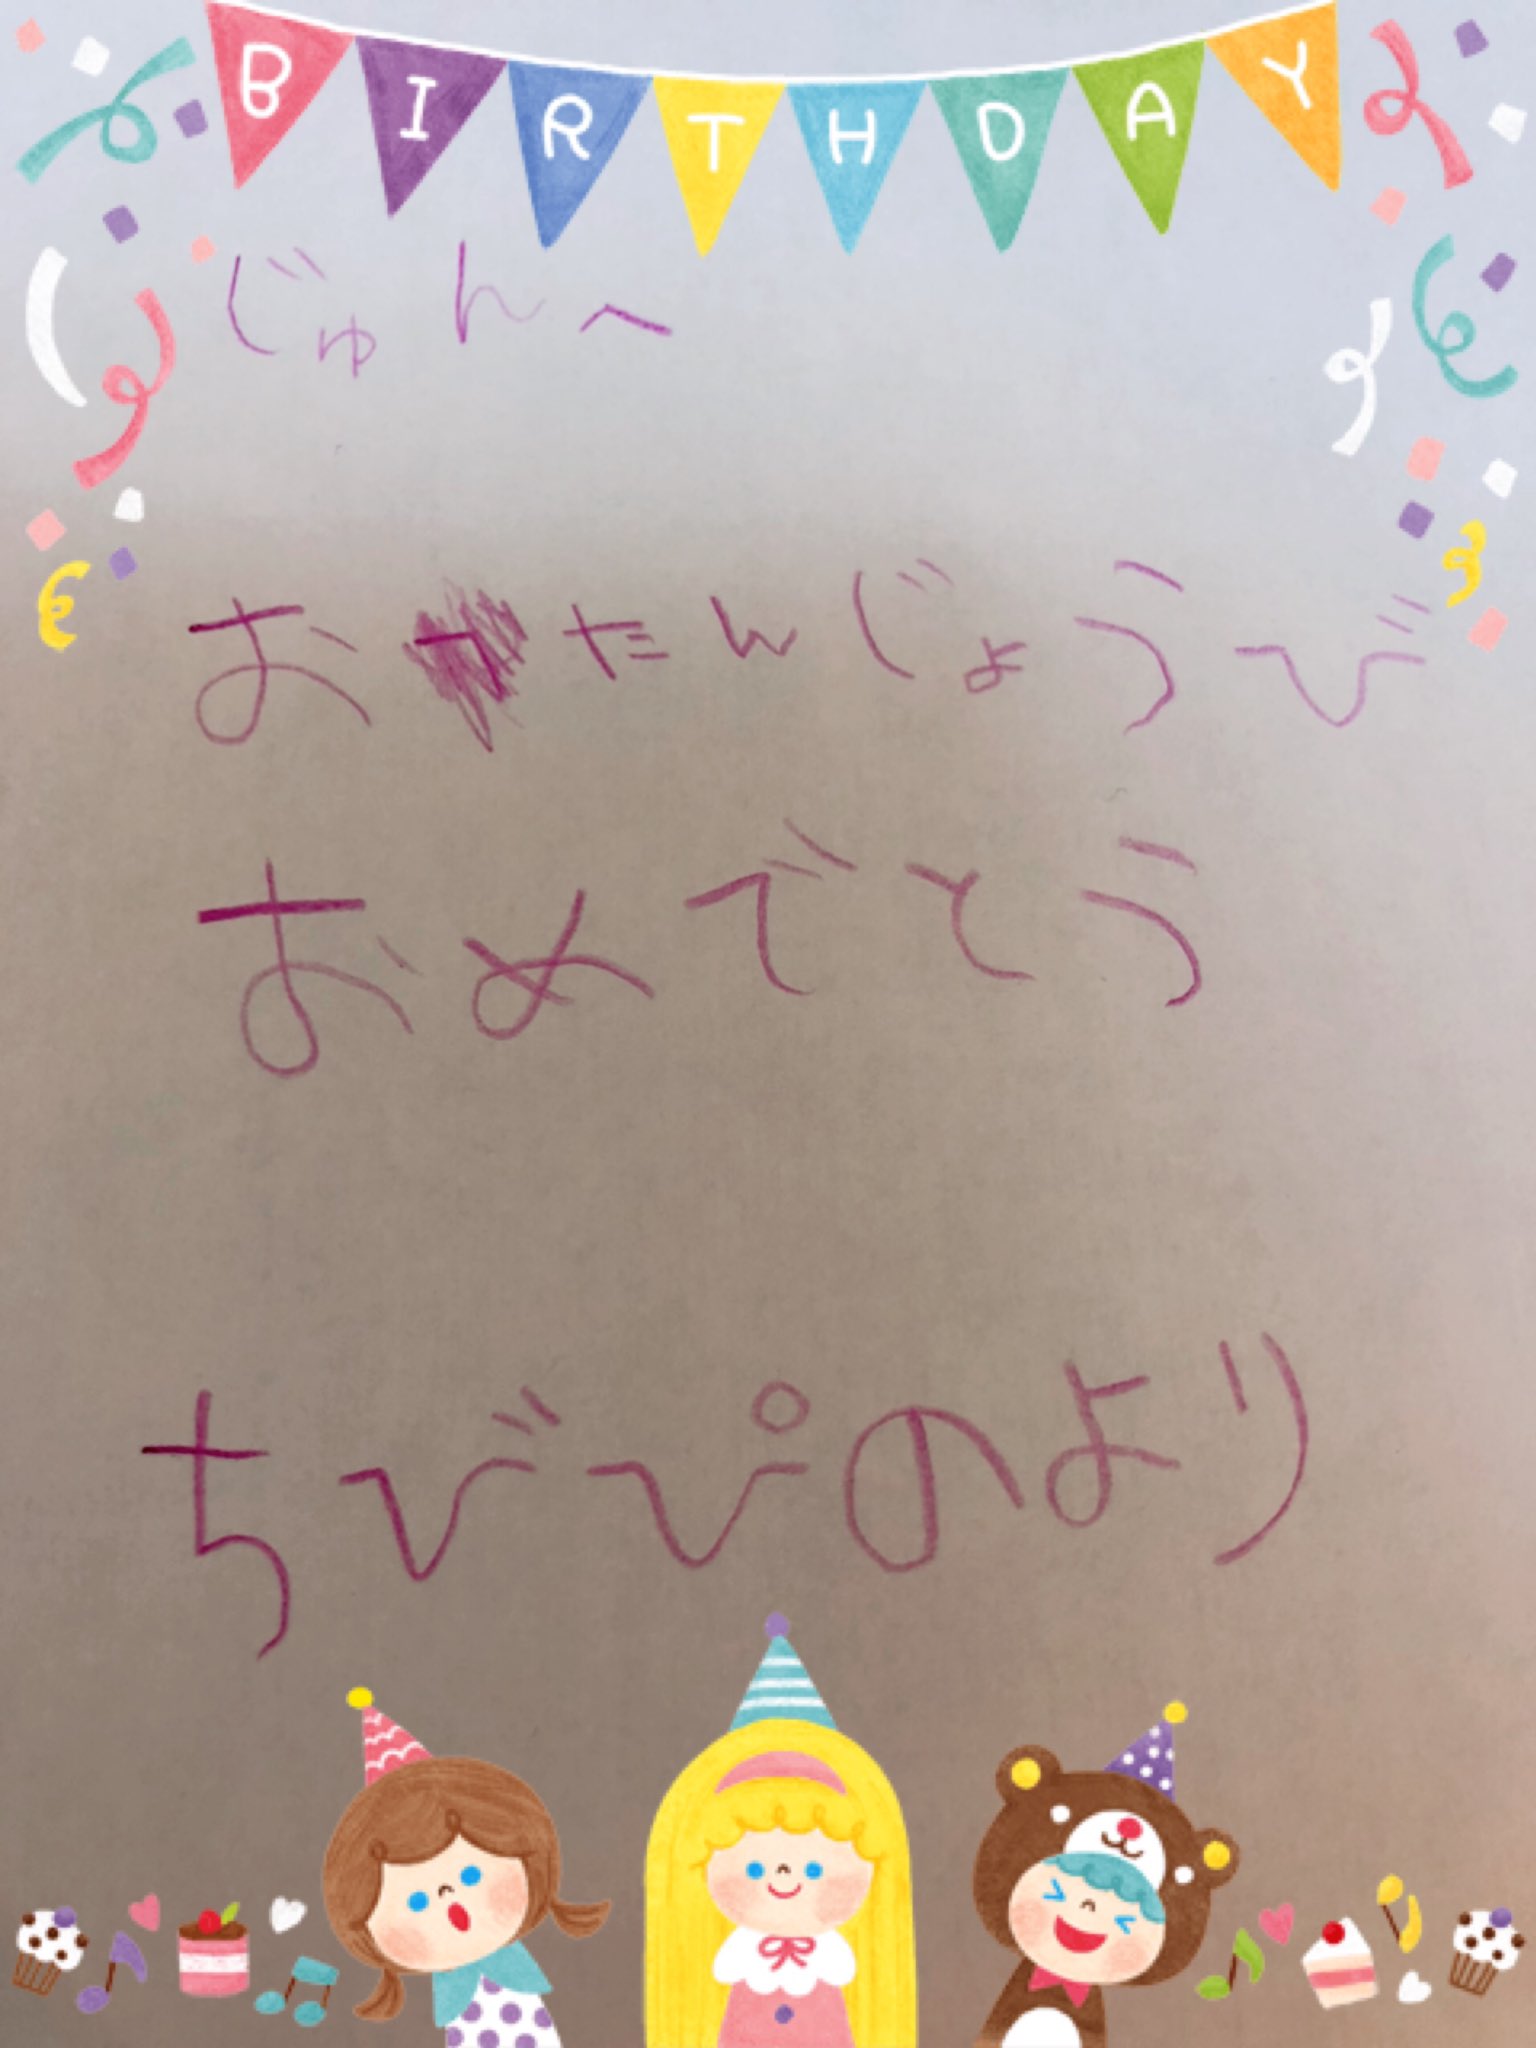 BIRTHDAY
じゅんへ
おたんじょうび
おめでとう
ちびぴのより